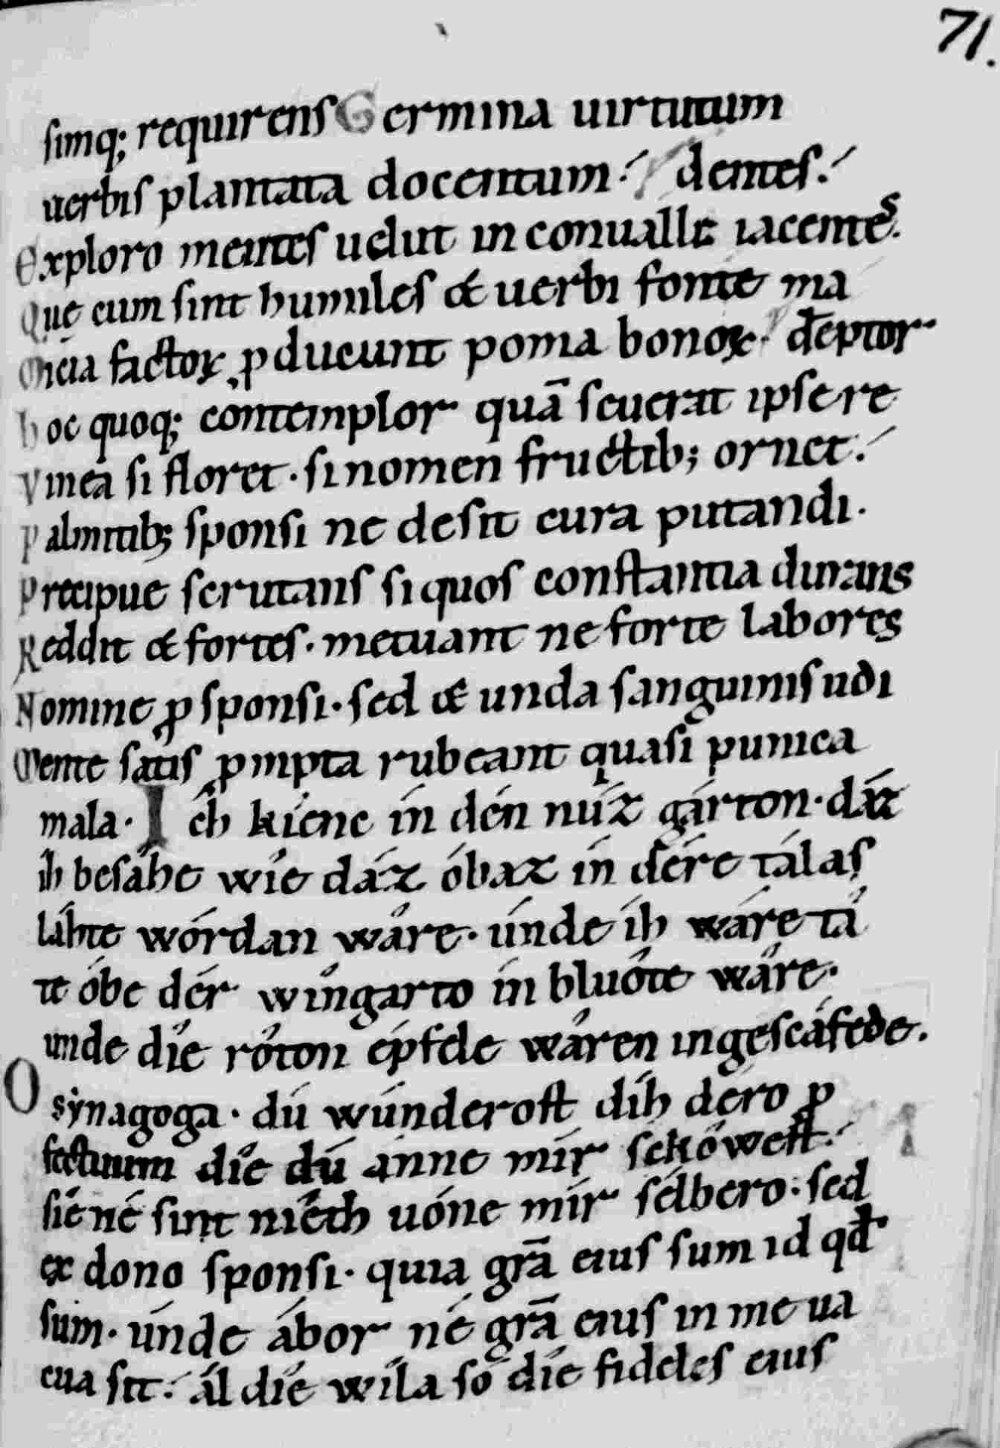 71.
simq; requirens Germina uirtutum
uerbis plantata docentum. dentes.
Exploro mentes uelut in conualle iacentes.
Que cum sint humiles & uerbi fonte ma
Mitia factoꝝ ꝓducunt poma bonoꝝ. dēptor
hoc quoq; contemplor quā seuerat ipse re
Vinea si floret. si nomen fructib; ornet.
Palmitib; sponsi ne desit cura putandi.
Precipue scrutans si quos constantia durans
Reddit & fortes. metuant ne forte labores
Nomine ꝓ sponsi. sed & unda sanguinis udi
Mente satis ꝓmpta rubeant quasi punica
mala. Ich kiene in den núz gárton. dáz
ih besáhe wîe dáz óbaz in dére tálas
láhte wórdan wâre. únde ih wáre tâ
te óbe dér wîngarto in bluôte wâre.
unde dîe rôton épfele wâren ingescáfede.
O synagoga. dú wúnderost díh déro ꝓ
fectuum dîe dú ánne mír sckôwest.
síe né sint nîeth uóne mír sélbero. sed
ex dono sponsi. quia grā eius sum id qđ
sum. únde ábor né grā eius in me ua
cua sit. ál dîe wîla sô dîe fideles eius